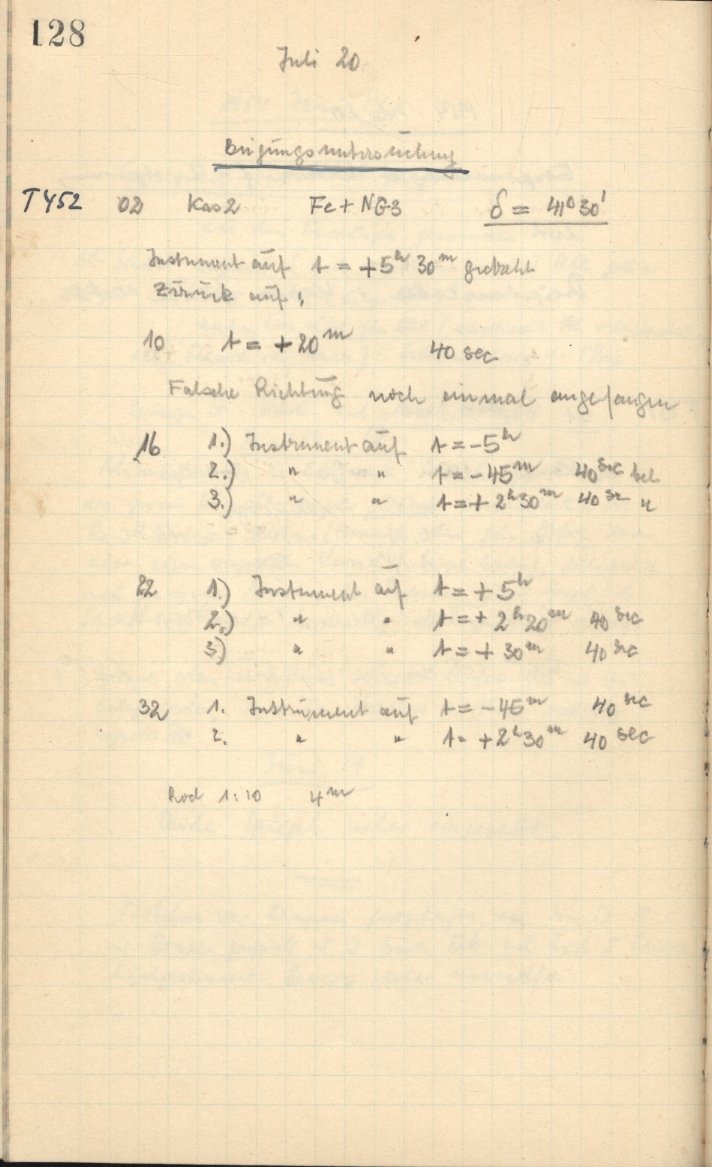 128
Juli 20
Biegungsuntersuchung
T452 02 Kas2 Fe + NG3 δ = 41° 30'
Instrument auf t = +5ʰ 30ᵐ gedreht
Zurück auf:
10 t = +20ᵐ 40 sec
Falsche Richtung noch einmal angefangen
16 1.) Instrument auf t = -5ʰ
2.) " " t = -45ᵐ 40ˢᵉᶜ bel
3.) " " t = + 2ʰ30ᵐ 40ˢᵉᶜ "
22 1.) Instrument auf t = + 5ʰ
2.) " " t = + 2ʰ20ᵐ 40ˢᵉᶜ
3) " " t = + 30ᵐ 40ˢᵉᶜ
32 1. Instrument auf t = -45ᵐ 40ˢᵉᶜ
2. " " t = +2ʰ30ᵐ 40ˢᵉᶜ
Rod 1:10 4ᵐ